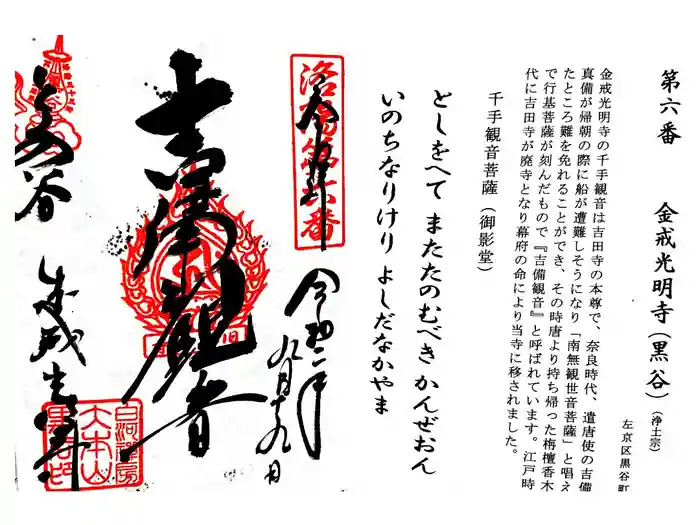 第六番 金戒光明寺(黒谷)(浄土宗)
左京区黒谷町
金戒光明寺の千手観音は吉田寺の本尊で、奈良時代、遣唐使の吉備
真備が帰朝の際に船が遭難しそうになり「南無観世音菩薩」と唱え
たところ難を免れることができ、その時唐より持ち帰った栴檀香木
で行基菩薩が刻んだもので『吉備観音』と呼ばれています。江戸時
代に吉田寺が廃寺となり幕府の命により当寺に移されました。
千手観音菩薩(御影堂)
としをへて またたのむべき かんぜおん
いのちなりけり よしだなかやま
洛陽第六番
奉拝
令和二年
九月十九日
吉備観音
黒谷 金戒光明寺
白河禅房
大本山